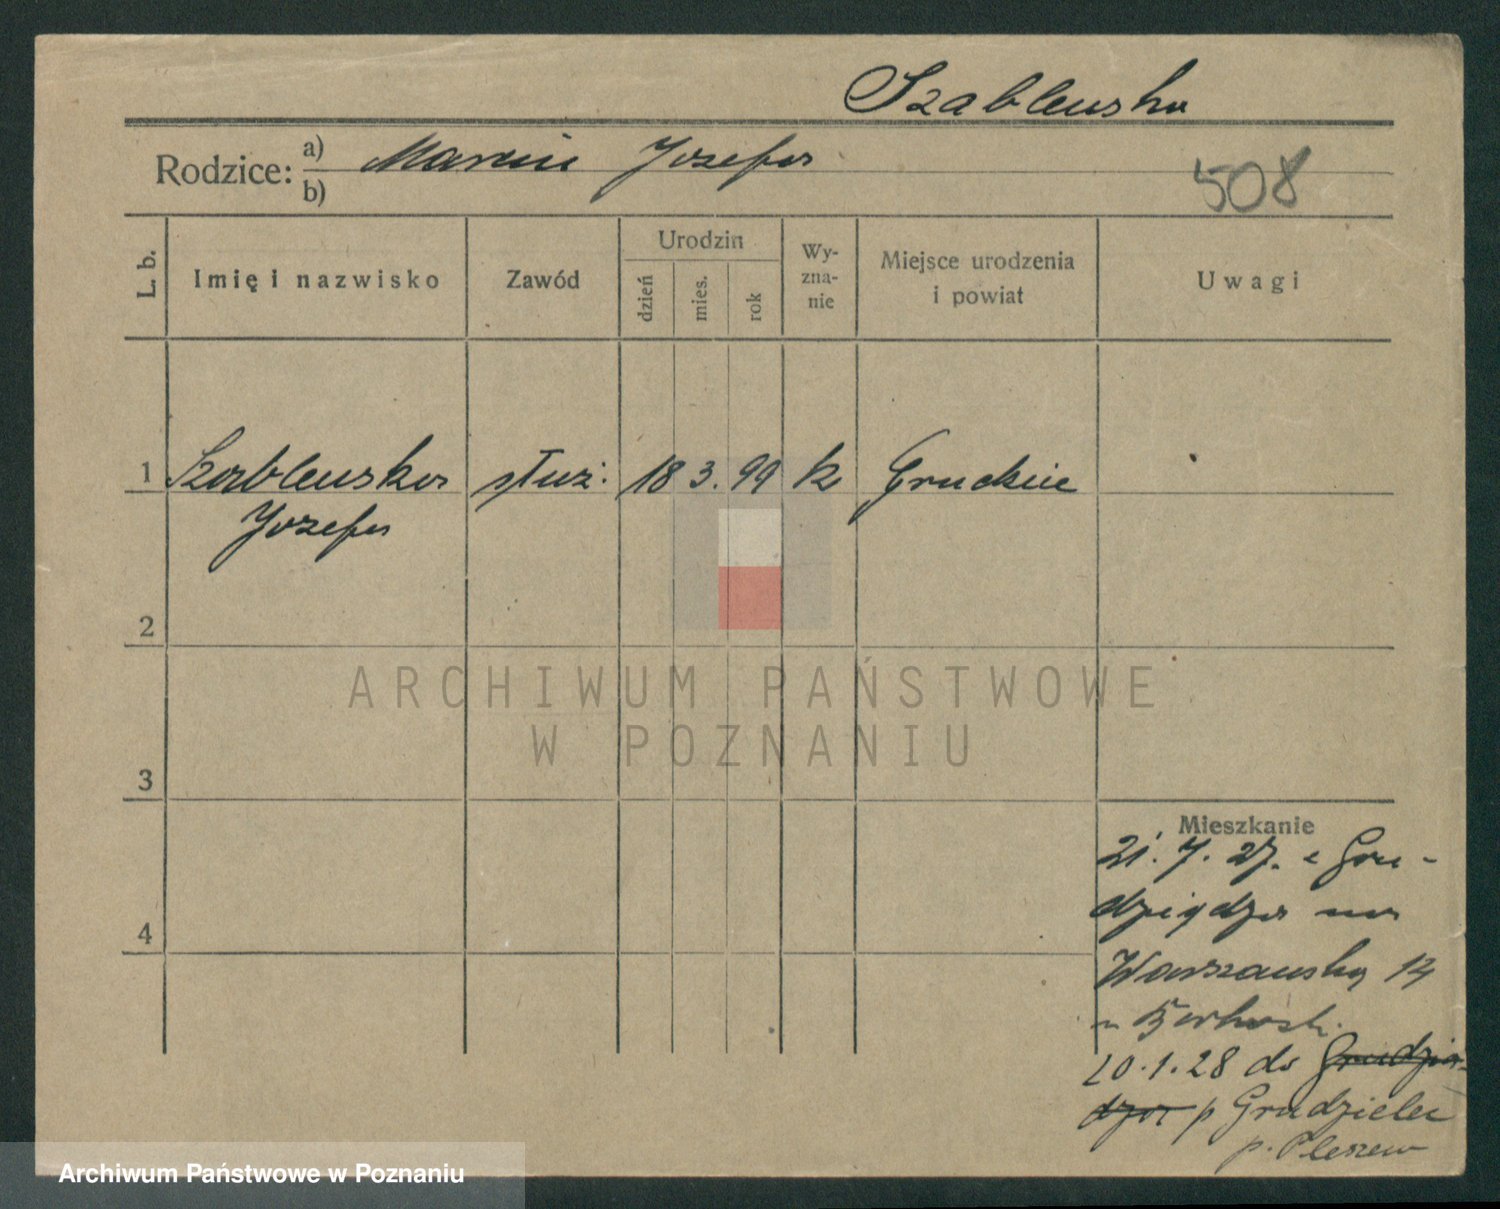 Szablewska
Rodzice: a) Marcin Józefa
b)
508
L. b.
Imię i nazwisko
Zawód
Urodzin
dzień
mies.
rok
Wy-
zna-
nie
Miejsce urodzenia
i powiat
Uwagi
1 Szablewska służ. 18 3. 99 k Gruckie
Józefa
2
3
4
Mieszkanie
21. 7. 27. z Gru-
dziądza na
Warszawską
10.1.28 do Grudzią-
dza p Grudzielec
p. Pleszew
ARCHIWUM PAŃSTWOWE
W POZNANIU
Archiwum Państwowe w Poznaniu